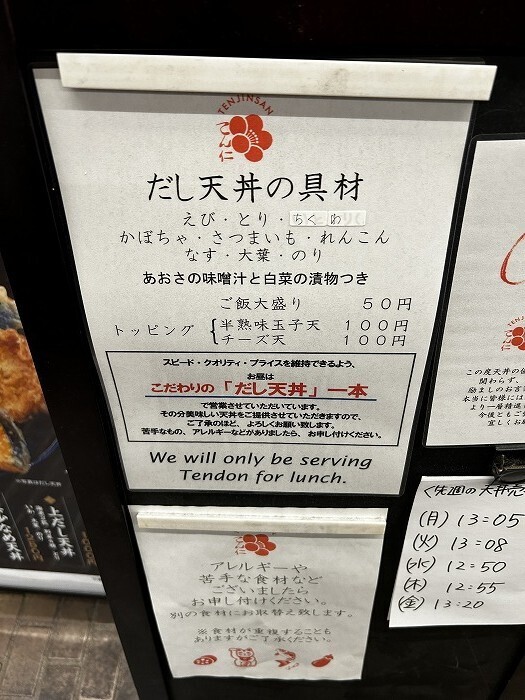 TENJINSAN
てん仁
だし天丼の具材
えび・とり・ちくわ
かぼちゃ・さつまいも・れんこん
なす・大葉・のり
あおさの味噌汁と白菜の漬物つき
ご飯大盛り 50円
トッピング{半熟味玉子天 100円
チーズ天 100円
スピード・クオリティ・プライスを維持できるよう、
お昼は
こだわりの「だし天丼」一本
で営業させていただいています。
その分美味しい天丼をご提供させていただきますので、
ご了承のほど、よろしくお願い致します。
苦手なもの、アレルギーなどがありましたら、お申し付けください。
We will only be serving
Tendon for lunch.
アレルギーや
苦手な食材など
ございましたら
お申し付けください。
別の食材にお取替え致します。
※食材が重複することも
ありますがご了承ください。
この度天丼の
関わらず、
励ましのお言
本当に皆様には
より一層精進
今後ともご
宜しくお
<先週の天丼完
(月) 13:05
(火) 13:08
(水) 12:50
(木) 12:55
(金) 13:20
上だし天丼